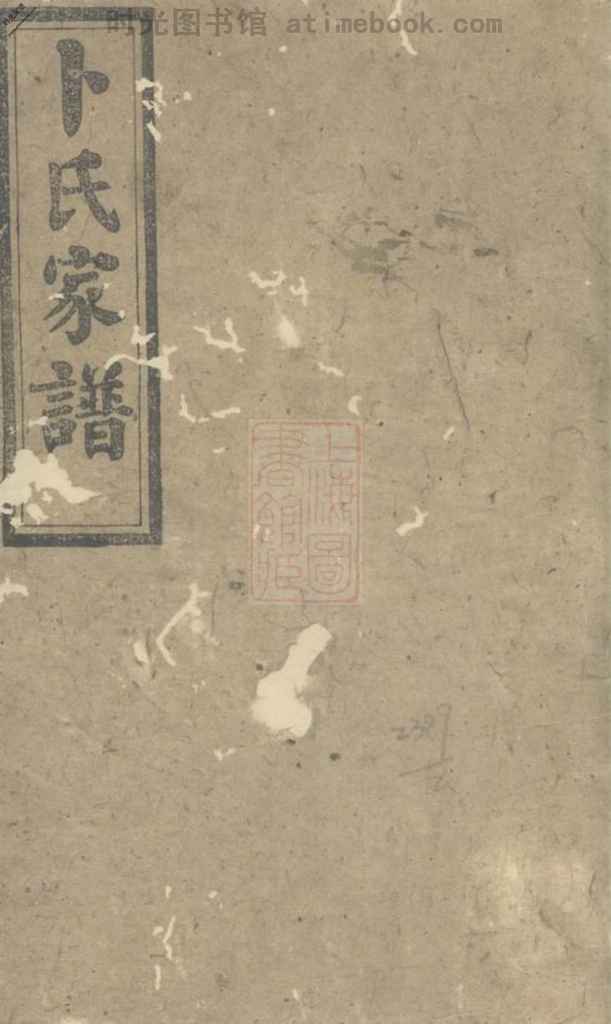 时光图书馆 atimebook.com
卜氏家譜
上海圖
書館藏